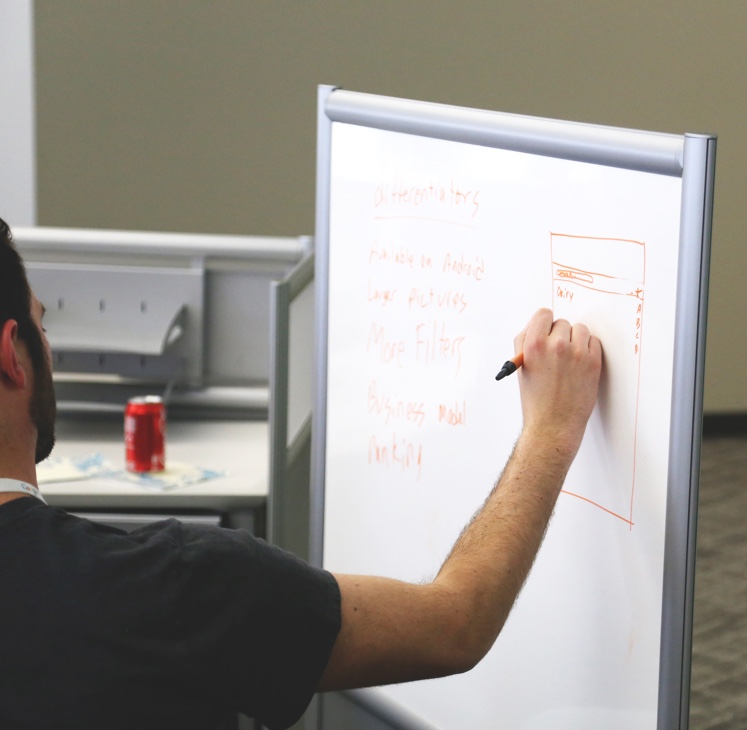 differentiators
Available on Android
Larger pictures
More Filters
Business model
ranking
Dairy
A
B
C
D